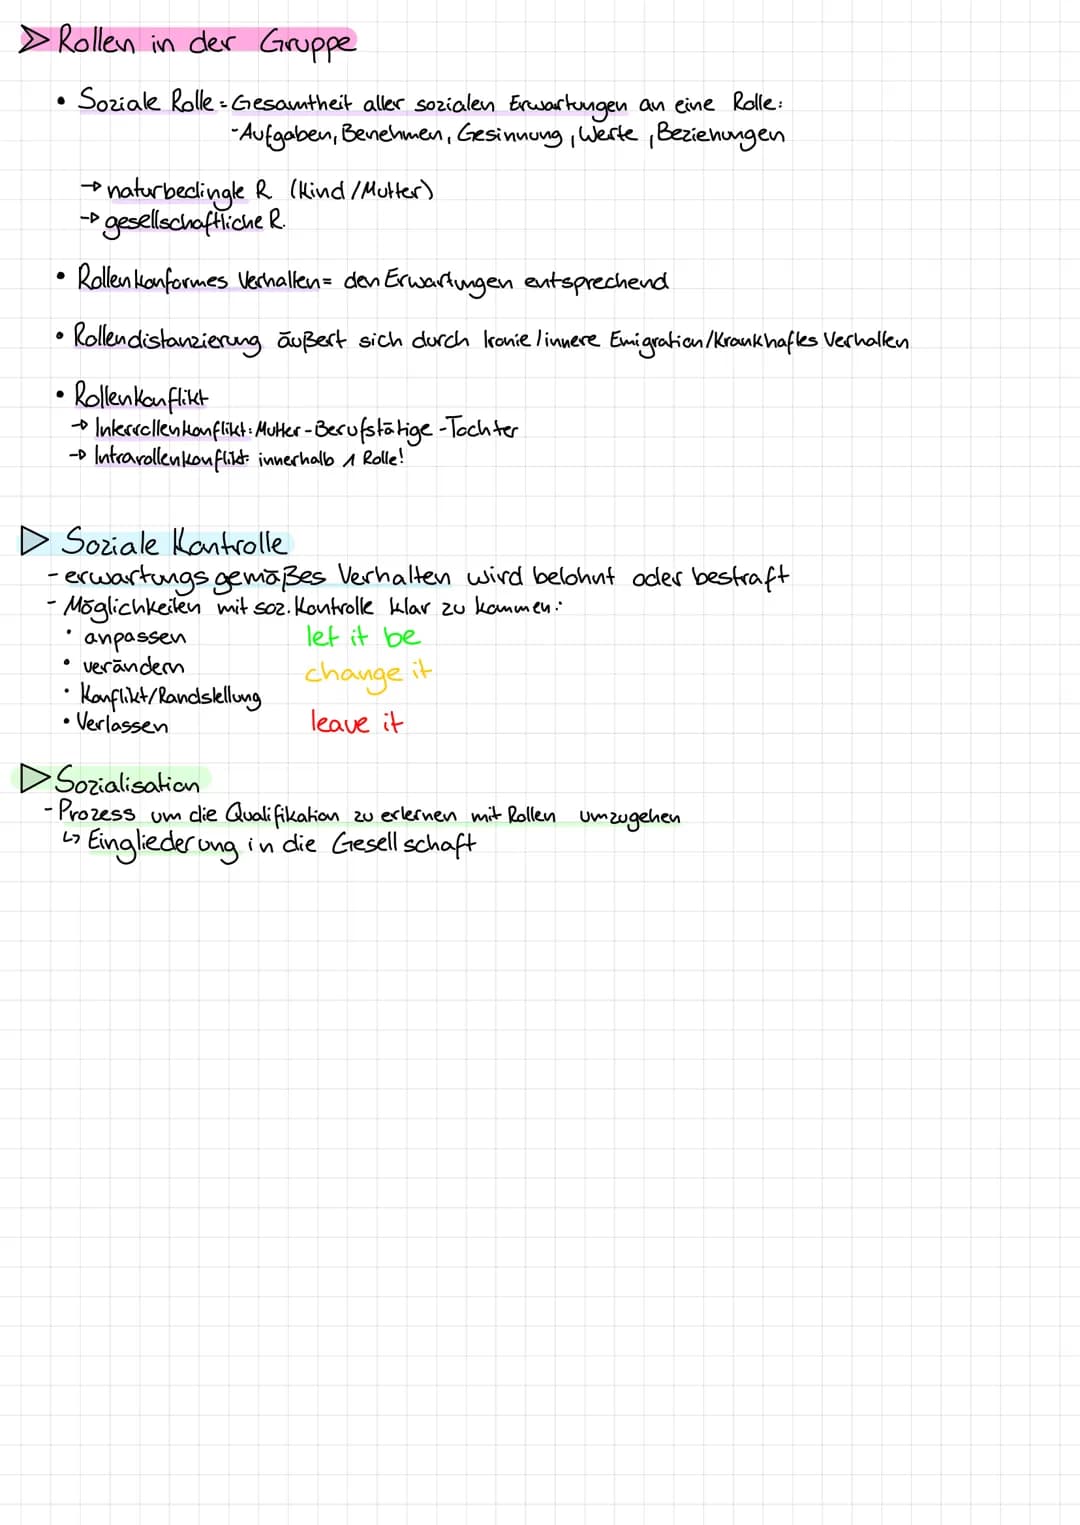 Rollen in der Gruppe
• Soziale Rolle = Gesamtheit aller sozialen Erwartungen an eine Rolle:
- Aufgaben, Benehmen, Gesinnung, Werte, Beziehungen
→ naturbedingte R. (Kind/Mutter)
→ gesellschaftliche R.
• Rollenkonformes Verhalten = den Erwartungen entsprechend
• Rollendistanzierung äußert sich durch Ironie/innere Emigration/Krankhaftes Verhalten
• Rollenkonflikt
→ Interrollenkonflikt: Mutter - Berufstätige - Tochter
→ Intrarollenkonflikt: innerhalb 1 Rolle!
Soziale Kontrolle
- erwartungsgemäßes Verhalten wird belohnt oder bestraft
- Möglichkeiten mit soz. Kontrolle klar zu kommen:
• anpassen let it be
• verändern change it
• Konflikt/Randstellung
• Verlassen leave it
Sozialisation
- Prozess um die Qualifikation zu erlernen mit Rollen umzugehen
↳ Eingliederung in die Gesellschaft